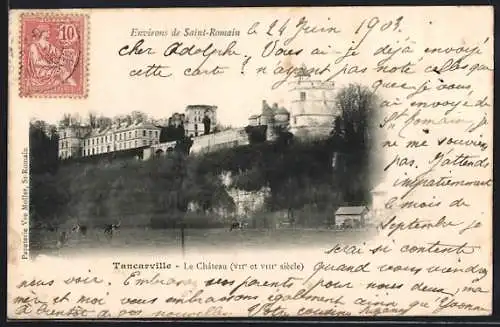 Environs de Saint-Romain
10
le 24 Juin 1903.
cher Adolphe, Vous ai-je déjà envoyé
cette carte ? n'ayant pas noté celles que
que je vous
ai envoyé de
St Romain, je
ne me souviens
pas. J'attends
impatiemment
le mois de
Septembre je
serai si contente
quand vous viendrez
Papeterie Vve Mollet, St-Romain
Tancarville - Le Château (VIIe et VIIIe siècle)
nous voir. Embrassez vos parents pour nous deux, ma
mère et moi vous embrassons également ainsi que Yvonne
A bientôt de vos nouvelles. Votre cousine